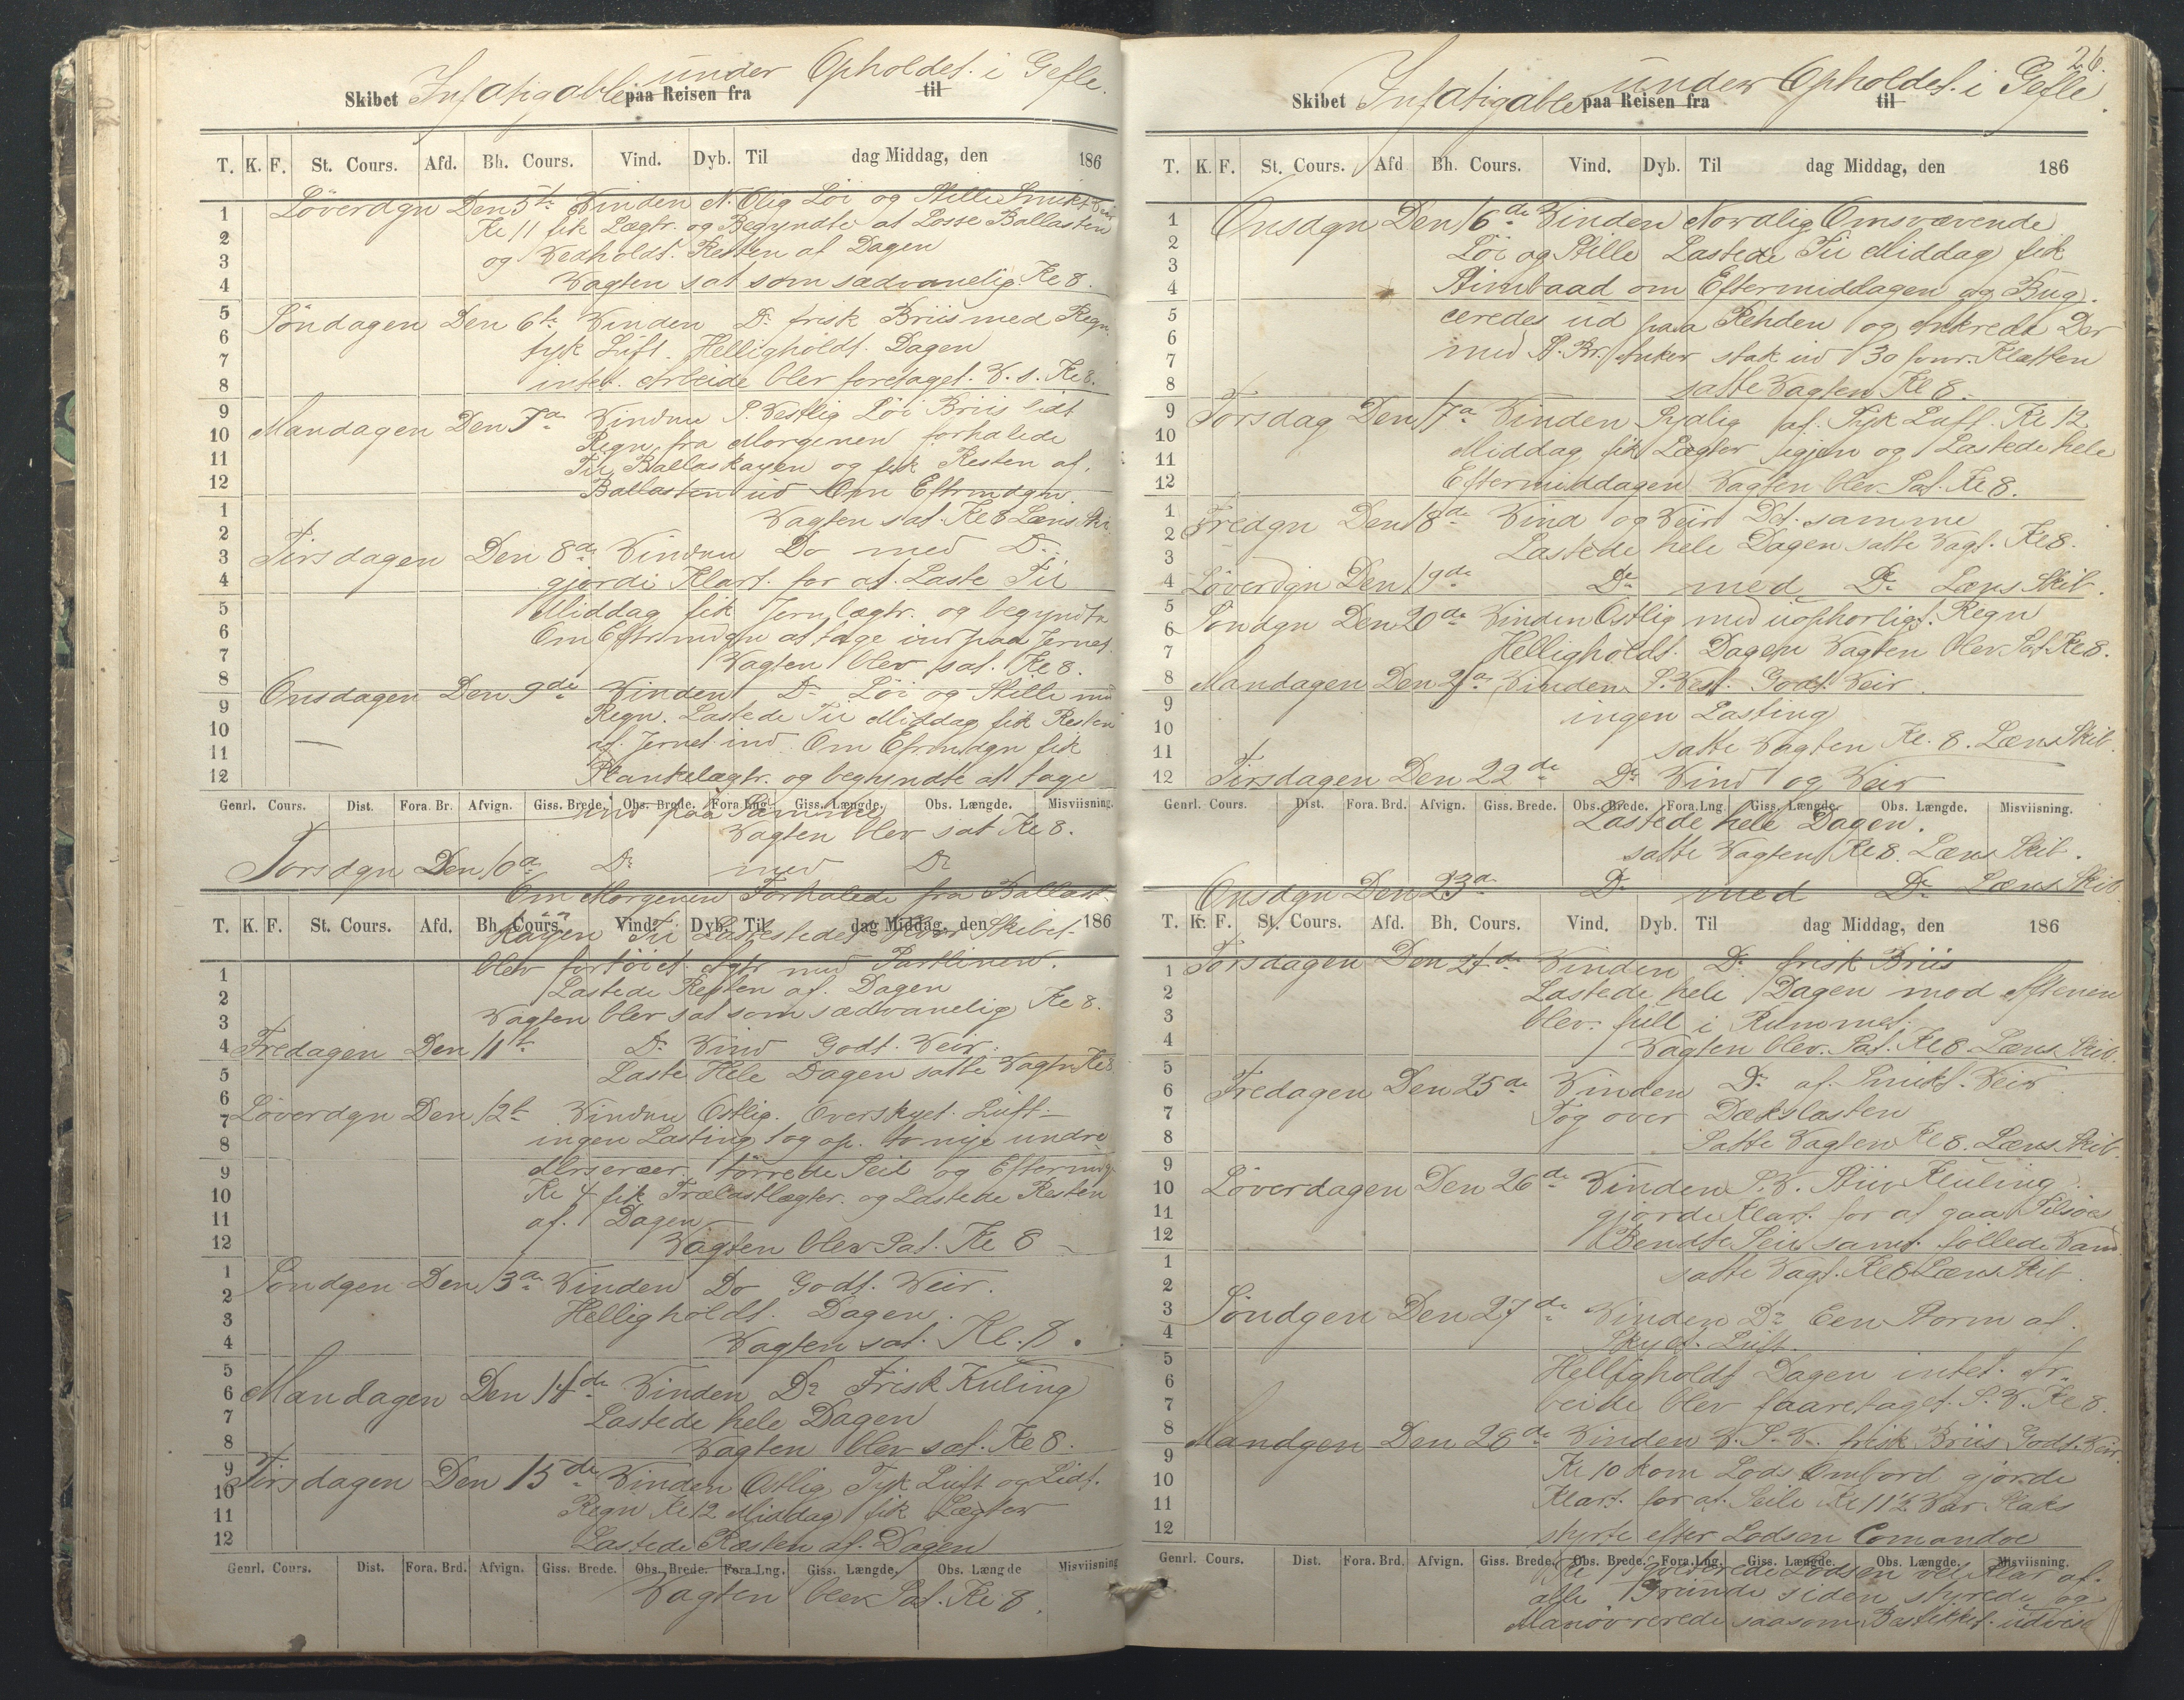 Skibet Infatigable paa Reisen fra under Opholdet i Gefle. til
T. K. F. St. Cours. Afd. Bh. Cours. Vind. Dyb. Til dag Middag, den 186
Löverdgn Den 5te Vinden N. Olig Löi og Stille Smukt Veir
Kl 11 fik Lægtr. og Begyndte at Losse Ballasten
og Vedholdt. Resten af Dagen
Vagten sat som sædvanelig Kl 8.
Söndagen Den 6te Vinden Do frisk Briis med Regn
tyk Luft. Helligholdt. Dagen
intet. Arbeide blev foretaget. V. s. Kl 8.
Mandagen Den 7de Vinden S. Vestlig Löi Briis lidt
Regn, fra Morgenen forhalede
Til Ballaskayen og fik Resten af.
Ballasten ud Om Eftrmdgn.
Vagten sat. Kl 8 Læns Ski
Tirsdagen Den 8de Vinden Do med Do
gjorde Klart. for at. Laste Til
Middag fik Jernlægtr. og begyndte
Om Eftrmdgn at tage ind paa Jernet.
Vagten blev sat. Kl 8.
Onsdagen Den 9de Vinden Do Löi og Stille med
Regn. Lastede Til Middag fik Resten
af. Jernet ind. Om Efrmdgn fik
Plankelægtr. og begyndte at tage
Genrl. Cours. Dist. Fora. Br. Afvign. Giss. Brede. Obs. Brede. Fora Lng. Giss. Længde. Obs. Længde. Misviisning.
ind paa Samme
Vagten blev sat Kl 8.
Torsdgn Den 10de Do med Do
Om Morgenen Forhalede fra Ballast-
T. K. F. St. Cours. Afd. Bh. Cours. Vind. Dyb. Til dag Middag, den 186
Kayen Til Lastestedet Hvor Skibet
blev fortöiet. Agtr med Partlinen.
Lastede Resten af. Dagen
Vagten blev sat som sædvanelig Kl 8.
Fredagen Den 11te Do Vind Godt. Veir.
Laste Hele Dagen satte Vagtn Kl 8
Löverdgn Den 12te Vinden Ostlig. Overskyet. Luft.
ingen Lasting tog op. to nye undre
törrede Seil og Eftermdg
Kl 4 fik Trælastlægter. og Lastede Resten
af. Dagen
Vagten blev Sat. Kl 8
Söndgen Den 13de Vinden Do Godt. Veir.
Helligholdt. Dagen.
Vagten sat. Kl. 8.
Mandagen Den 14de Vinden Do Frisk Kuling
Lastede hele Dagen
Vagten blev sat. Kl 8.
Tirsdagen Den 15de Vinden Ostlig Tyk Luft og Lidt.
Regn Kl 12 Middag fik Lægter
Lastede Resten af. Dagen
Genrl. Cours. Dist. Fora. Brd. Afvign. Giss. Brede. Obs. Brede. Fora. Lng. Giss. Længde. Obs. Længde Misviisning
Vagten blev Sat. Kl 8.
26.
Skibet Infatigable paa Reisen fra under Opholdet. i Gefle til
T. K. F. St. Cours. Afd Bh. Cours. Vind. Dyb. Til dag Middag, den 186
Onsdgn Den 16de Vinden Nordlig Omsvævende
Löi og Stille Lastede Til Middag fik
Stimbaad om Eftermiddagen og Bug.
ceredes ud paa Rehden og Ankrede Der
med S. Br. Anker stak ud 30 favr. Klætten
satte Vagten Kl 8.
Torsdag Den 17de Vinden Sydlig af. Tyk Luft. Kl 12
Middag fik Lægter igjen og Lastede hele
Eftermiddagen Vagten blev. Sat. Kl 8.
Fredgn Den 18de Vind og Veir Det. samme
Lastede hele Dagen satte Vagt. Kl 8.
Löverdgn Den 19de Do med Do Læns Skib.
Söndgn Den 20de Vinden Ostlig med uophorligt. Regn
Helligholdt. Dagen Vagten blev Sat. Kl 8.
Mandagen Den 21de Vinden S. Vest. Godt. Veir.
ingen Lasting
satte Vagten Kl. 8. Læns Skib.
Tirsdagen Den 22de Do Vind og Veir
Genrl. Cours. Dist. Fora. Brd. Afvign. Giss. Brede. Obs. Brede. Fora. Lng. Giss. Længde. Obs. Længde. Misviisning.
Lastede hele Dagen.
satte Vagten Kl 8. Læns Skib.
Onsdgn Den 23de Do med Do Læns Skib
T. K. F. St. Cours. Afd. Bh. Cours. Vind. Dyb. Til dag Middag, den 186
Torsdagen Den 24de Vinden Do frisk Briis
Lastede hele Dagen mod Aftenen
blev. full i Rummet.
Vagten blev. Sat. Kl 8 Læns Skib.
Fredagen Den 25de Vinden Do af. Smukt. Veir
Tog over Dækslasten
Satte Vagten Kl 8. Læns Skib.
Löverdagen Den 26de Vinden S. V. Stiv Kuling.
gjorde Klart. for at gaa Tilsöes
Bendte Seil samt. föllede Vand
satte Vagt. Kl 8 Læns Skib
Söndgen Den 27de Vinden Do Een Storm af.
Skyet. Luft.
Helligholdt Dagen intet. Ar
beide blev faaretaget. S. V. Kl 8.
Mandgen Den 28de Vinden V. S. V. frisk Briis Godt. Veir.
Kl 10 kom Lods Ombord gjorde
Klart. for at. Seile Kl 11½ Var Slaks
styrte efter Lodsen Comandoe
Genrl. Cours. Dist. Fora. Brd. Afvign. Giss. Brede. Obs. Brede. Fora. Lng. Giss. Længde. Obs. Længde. Misviisning.
Kl Lodsen vel klar af.
alle Grunde siden styrede og
Manövrerede saasom Bestikket. udvise